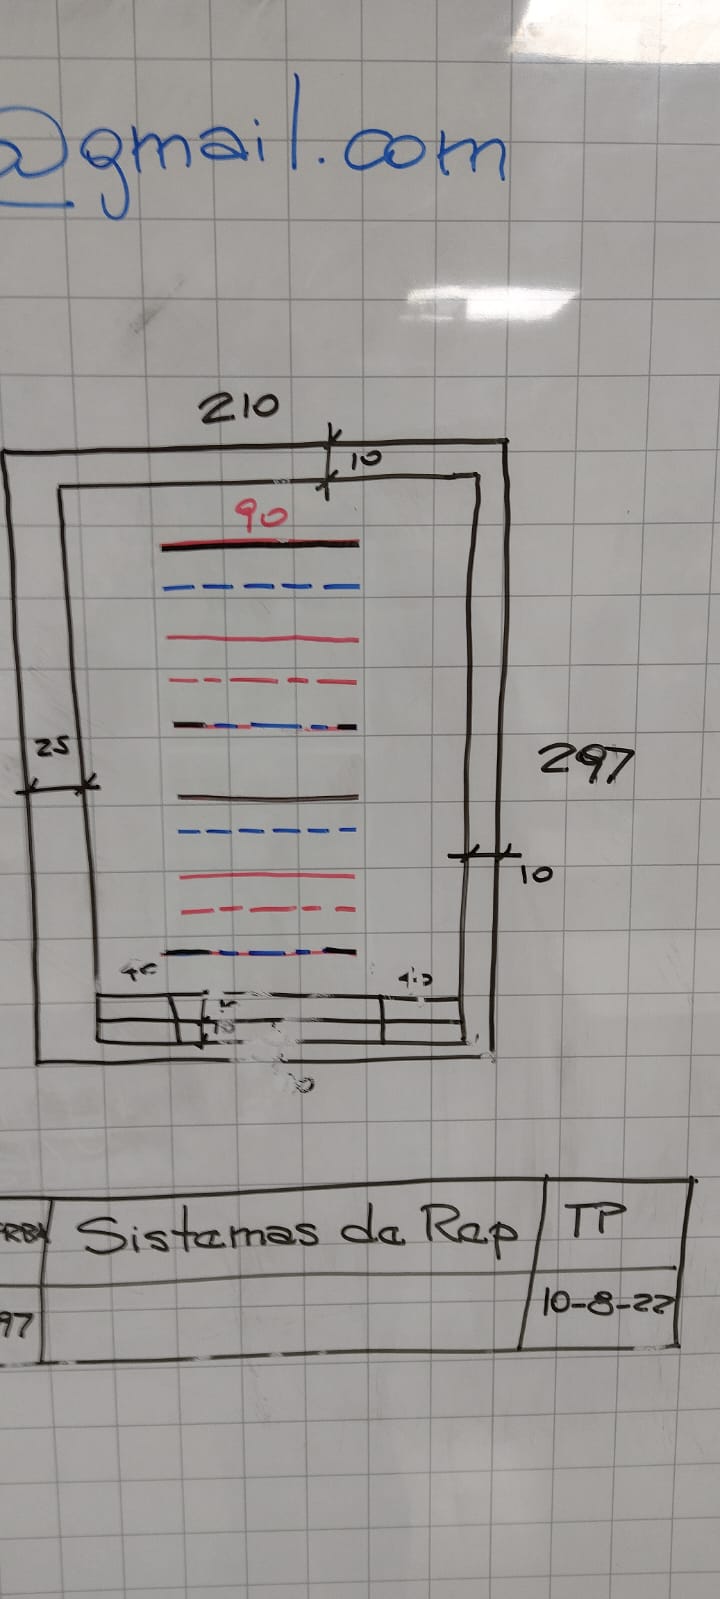 @gmail.com
210
10
90
25
297
10
40
10
Sistemas de Rep TP
97 10-8-22